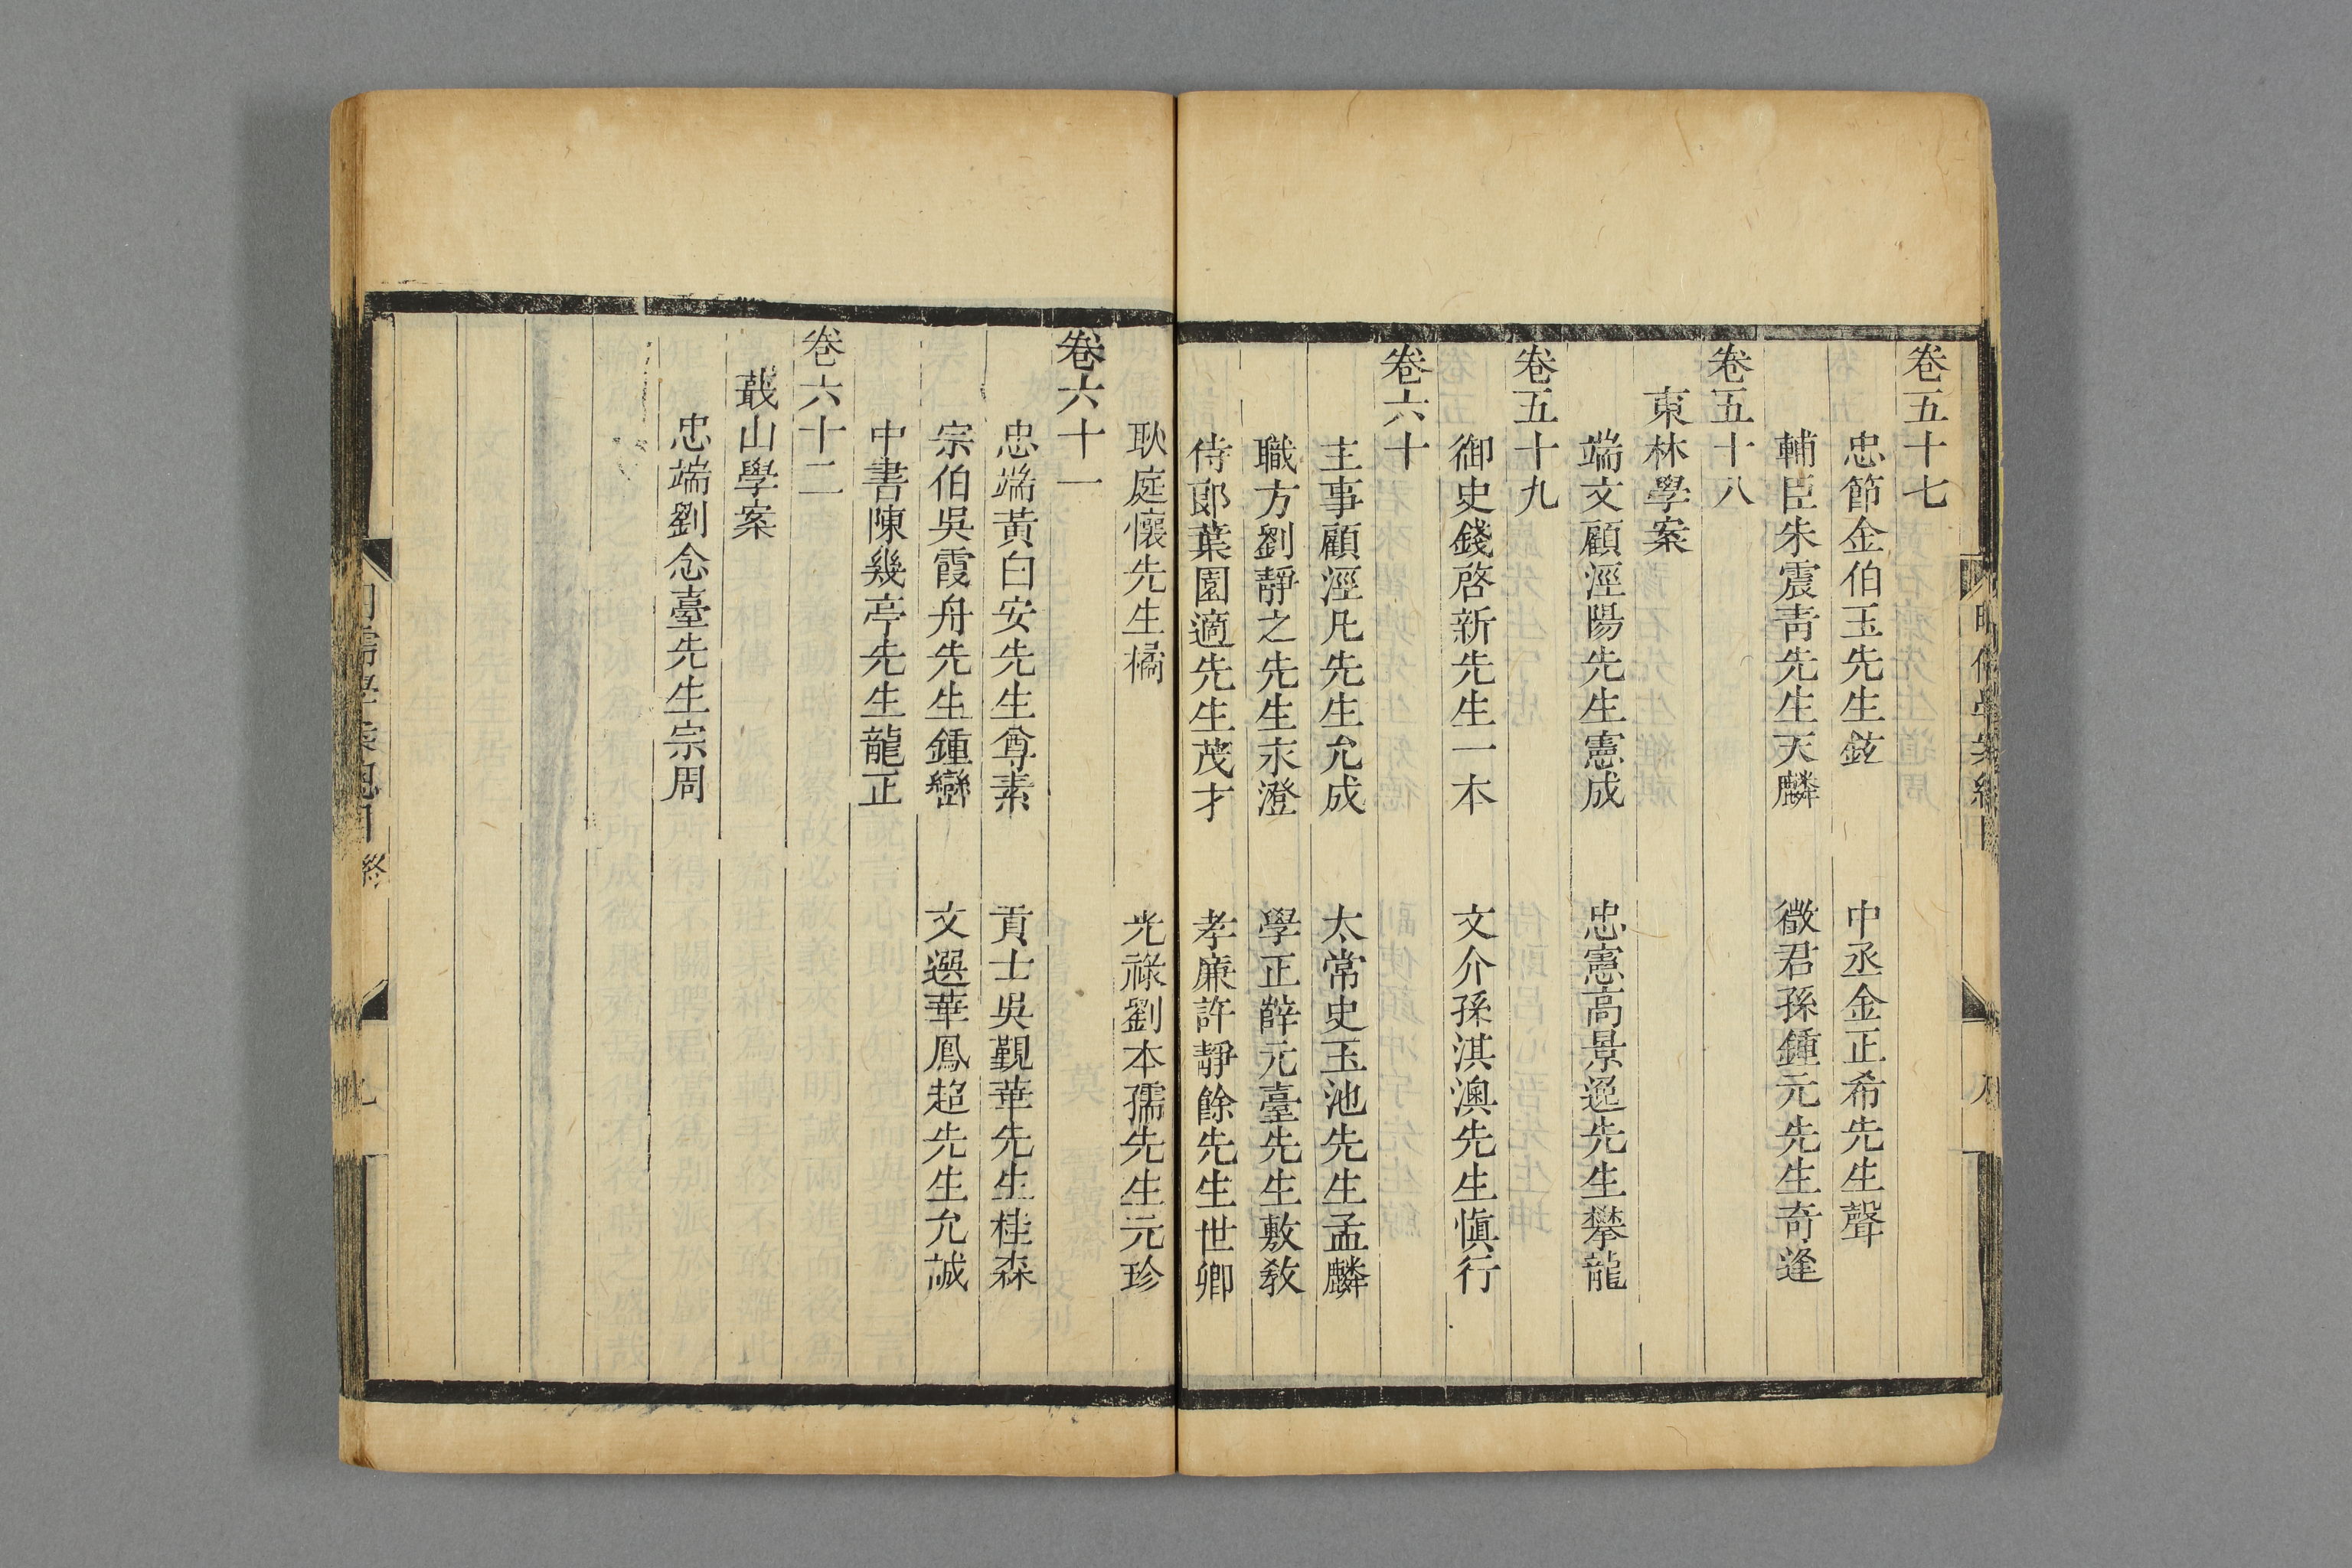 卷五十七
忠節金伯玉先生鉉　中丞金正希先生聲
輔臣朱震靑先生天麟　徵君孫鍾元先生奇逢
卷五十八
東林學案
端文顧涇陽先生憲成　忠憲高景逸先生攀龍
卷五十九
御史錢啓新先生一本　文介孫淇澳先生愼行
卷六十
主事顧涇凡先生允成　太常史玉池先生孟麟
職方劉靜之先生永澄　學正薛元臺先生敷敎
侍郎葉園適先生茂才　孝廉許靜餘先生世卿
耿庭懷先生橘　光祿劉本孺先生元珍
卷六十一
忠端黃白安先生尊素　貢士吳覲華先生桂森
宗伯吳霞舟先生鍾巒　文選華鳳超先生允誠
中書陳幾亭先生龍正
卷六十二
蕺山學案
忠端劉念臺先生宗周